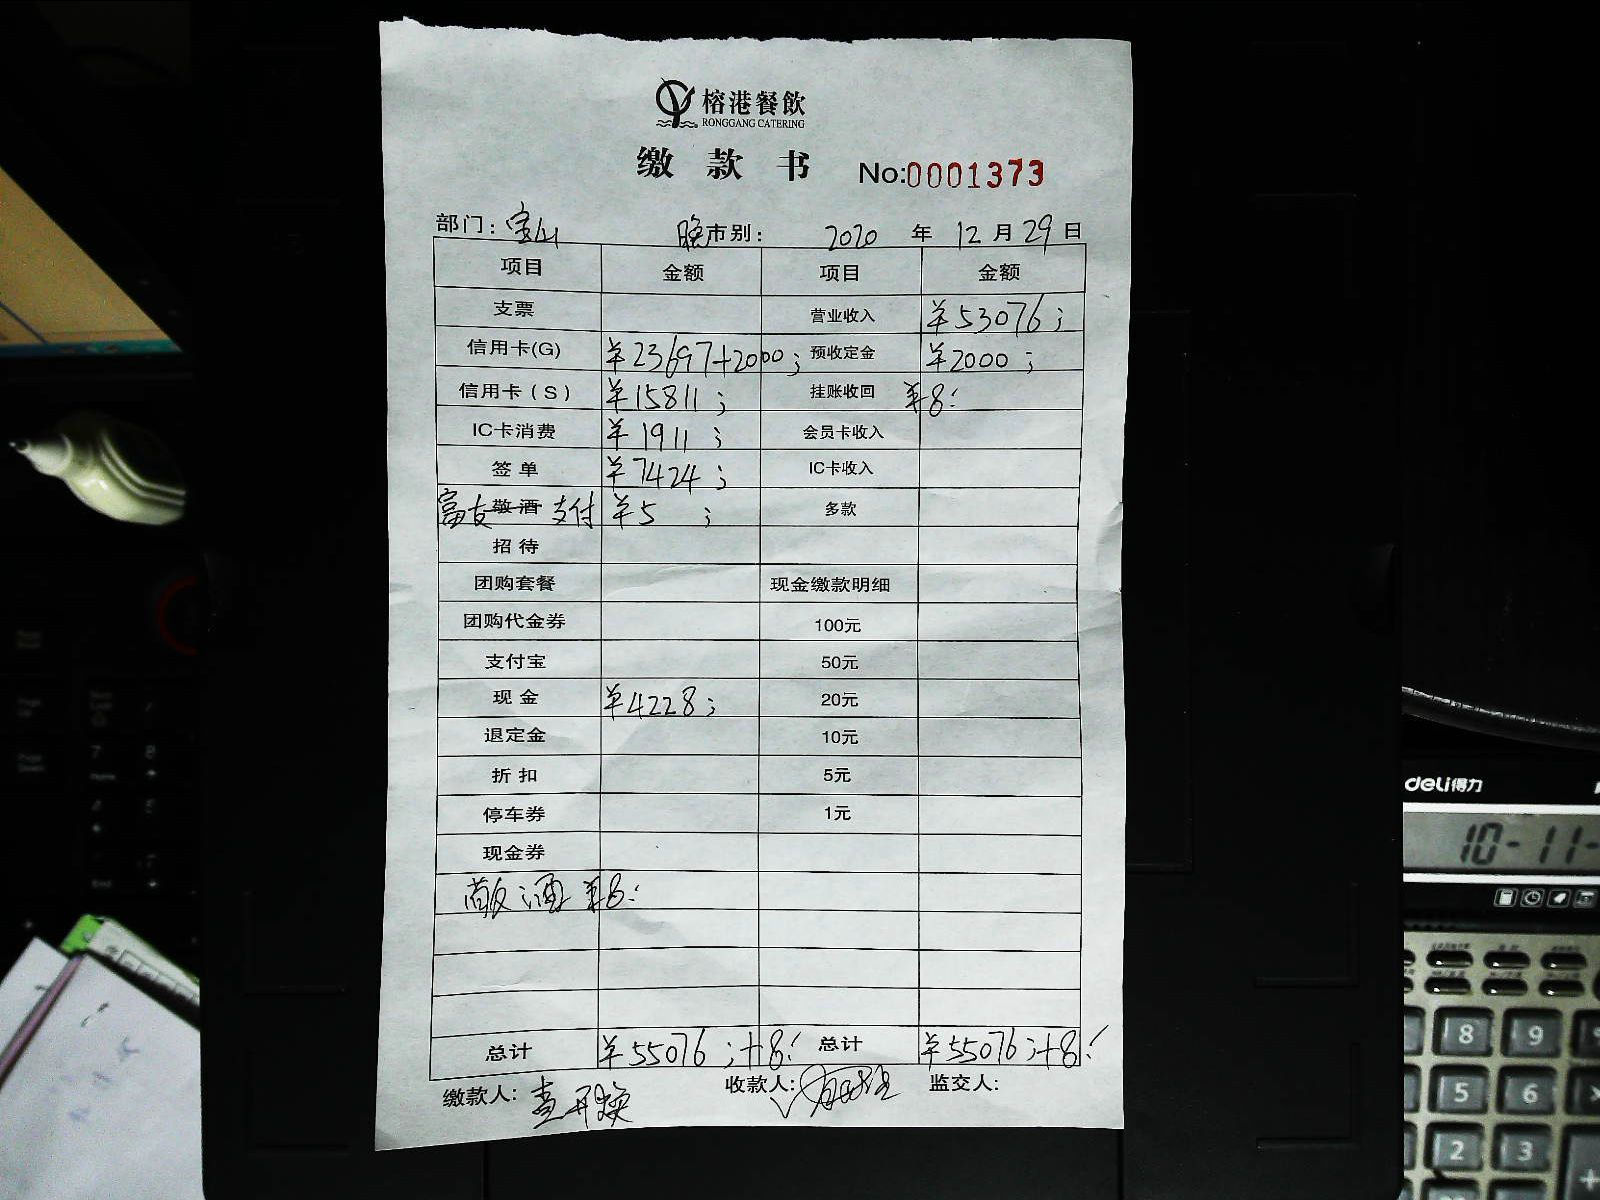 榕港餐飲
RONGGANG CATERING
缴款书 No:0001373
部门: 宝山 晚市别: 2020 年 12 月 29 日
项目 金额 项目 金额
支票 营业收入 ¥53076;
信用卡(G) ¥23697+2000; 预收定金 ¥2000;
信用卡(S) ¥15811; 挂账收回 ¥8:
IC卡消费 ¥1911; 会员卡收入
签单 ¥7424; IC卡收入
富友敬酒支付 ¥5; 多款
招待
团购套餐 现金缴款明细
团购代金券 100元
支付宝 50元
现金 ¥4228; 20元
退定金 10元
折扣 5元
停车券 1元
现金券
敬酒 ¥8:
总计 ¥55076;+8: 总计 ¥55076;+8:
缴款人: 收款人: 监交人:
deli得力
10-11-
8 9
5 6
2 3